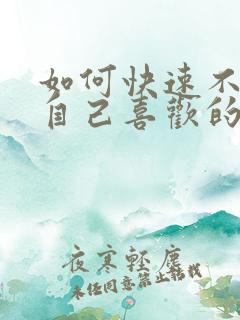 如何快速不
自己喜歡的
夜寒輕塵
未经同意禁止转载